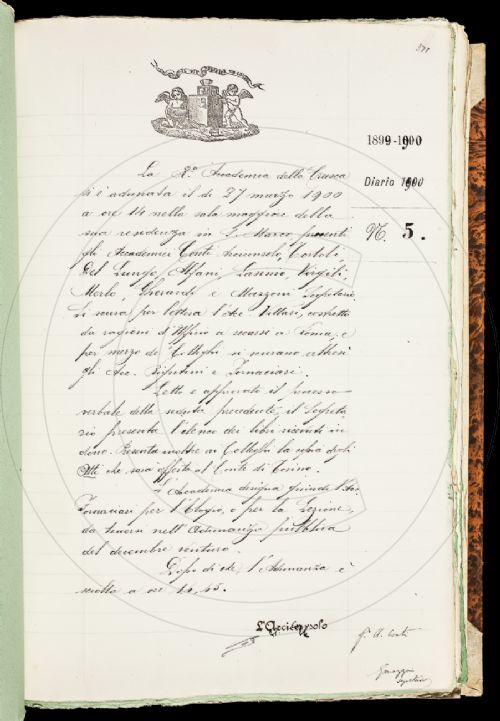 371
1899-1900
Diario 1900
N. 5.
La R. Accademia della Crusca
si è adunata il dì 27 marzo 1900
a ore 14 nella sala maggiore della
sua residenza in S. Marco presenti
gli Accademici Conti Arciconsolo, Tortoli,
Del Lungo, Alfani, Casini, Virgili,
Merlo, Gherardi e Mazzoni Segretario.
Si scusa per lettera l'Acc. Villari, costretto
da ragioni d'Uffizio a recarsi a Roma, e
per mezzo de' Colleghi si scusano altresì
gli Acc. Rigutini e Fornaciari.
Letto e approvato il processo
verbale della seduta precedente, il Segreta-
rio presenta l'elenco dei libri ricevuti in
dono. Presenta inoltre ai Colleghi la copia degli
Atti che sarà offerta al Conte di Torino.
L'Accademia designa quindi l'Acc.
Fornaciari per l'Elogio, e per la Lezione,
da tenersi nell'Adunanza pubblica
del decembre venturo.
Dopo di che l'Adunanza è
sciolta a ore 14,45.
L'Arciconsolo
A. Conti
G. Mazzoni
segretario